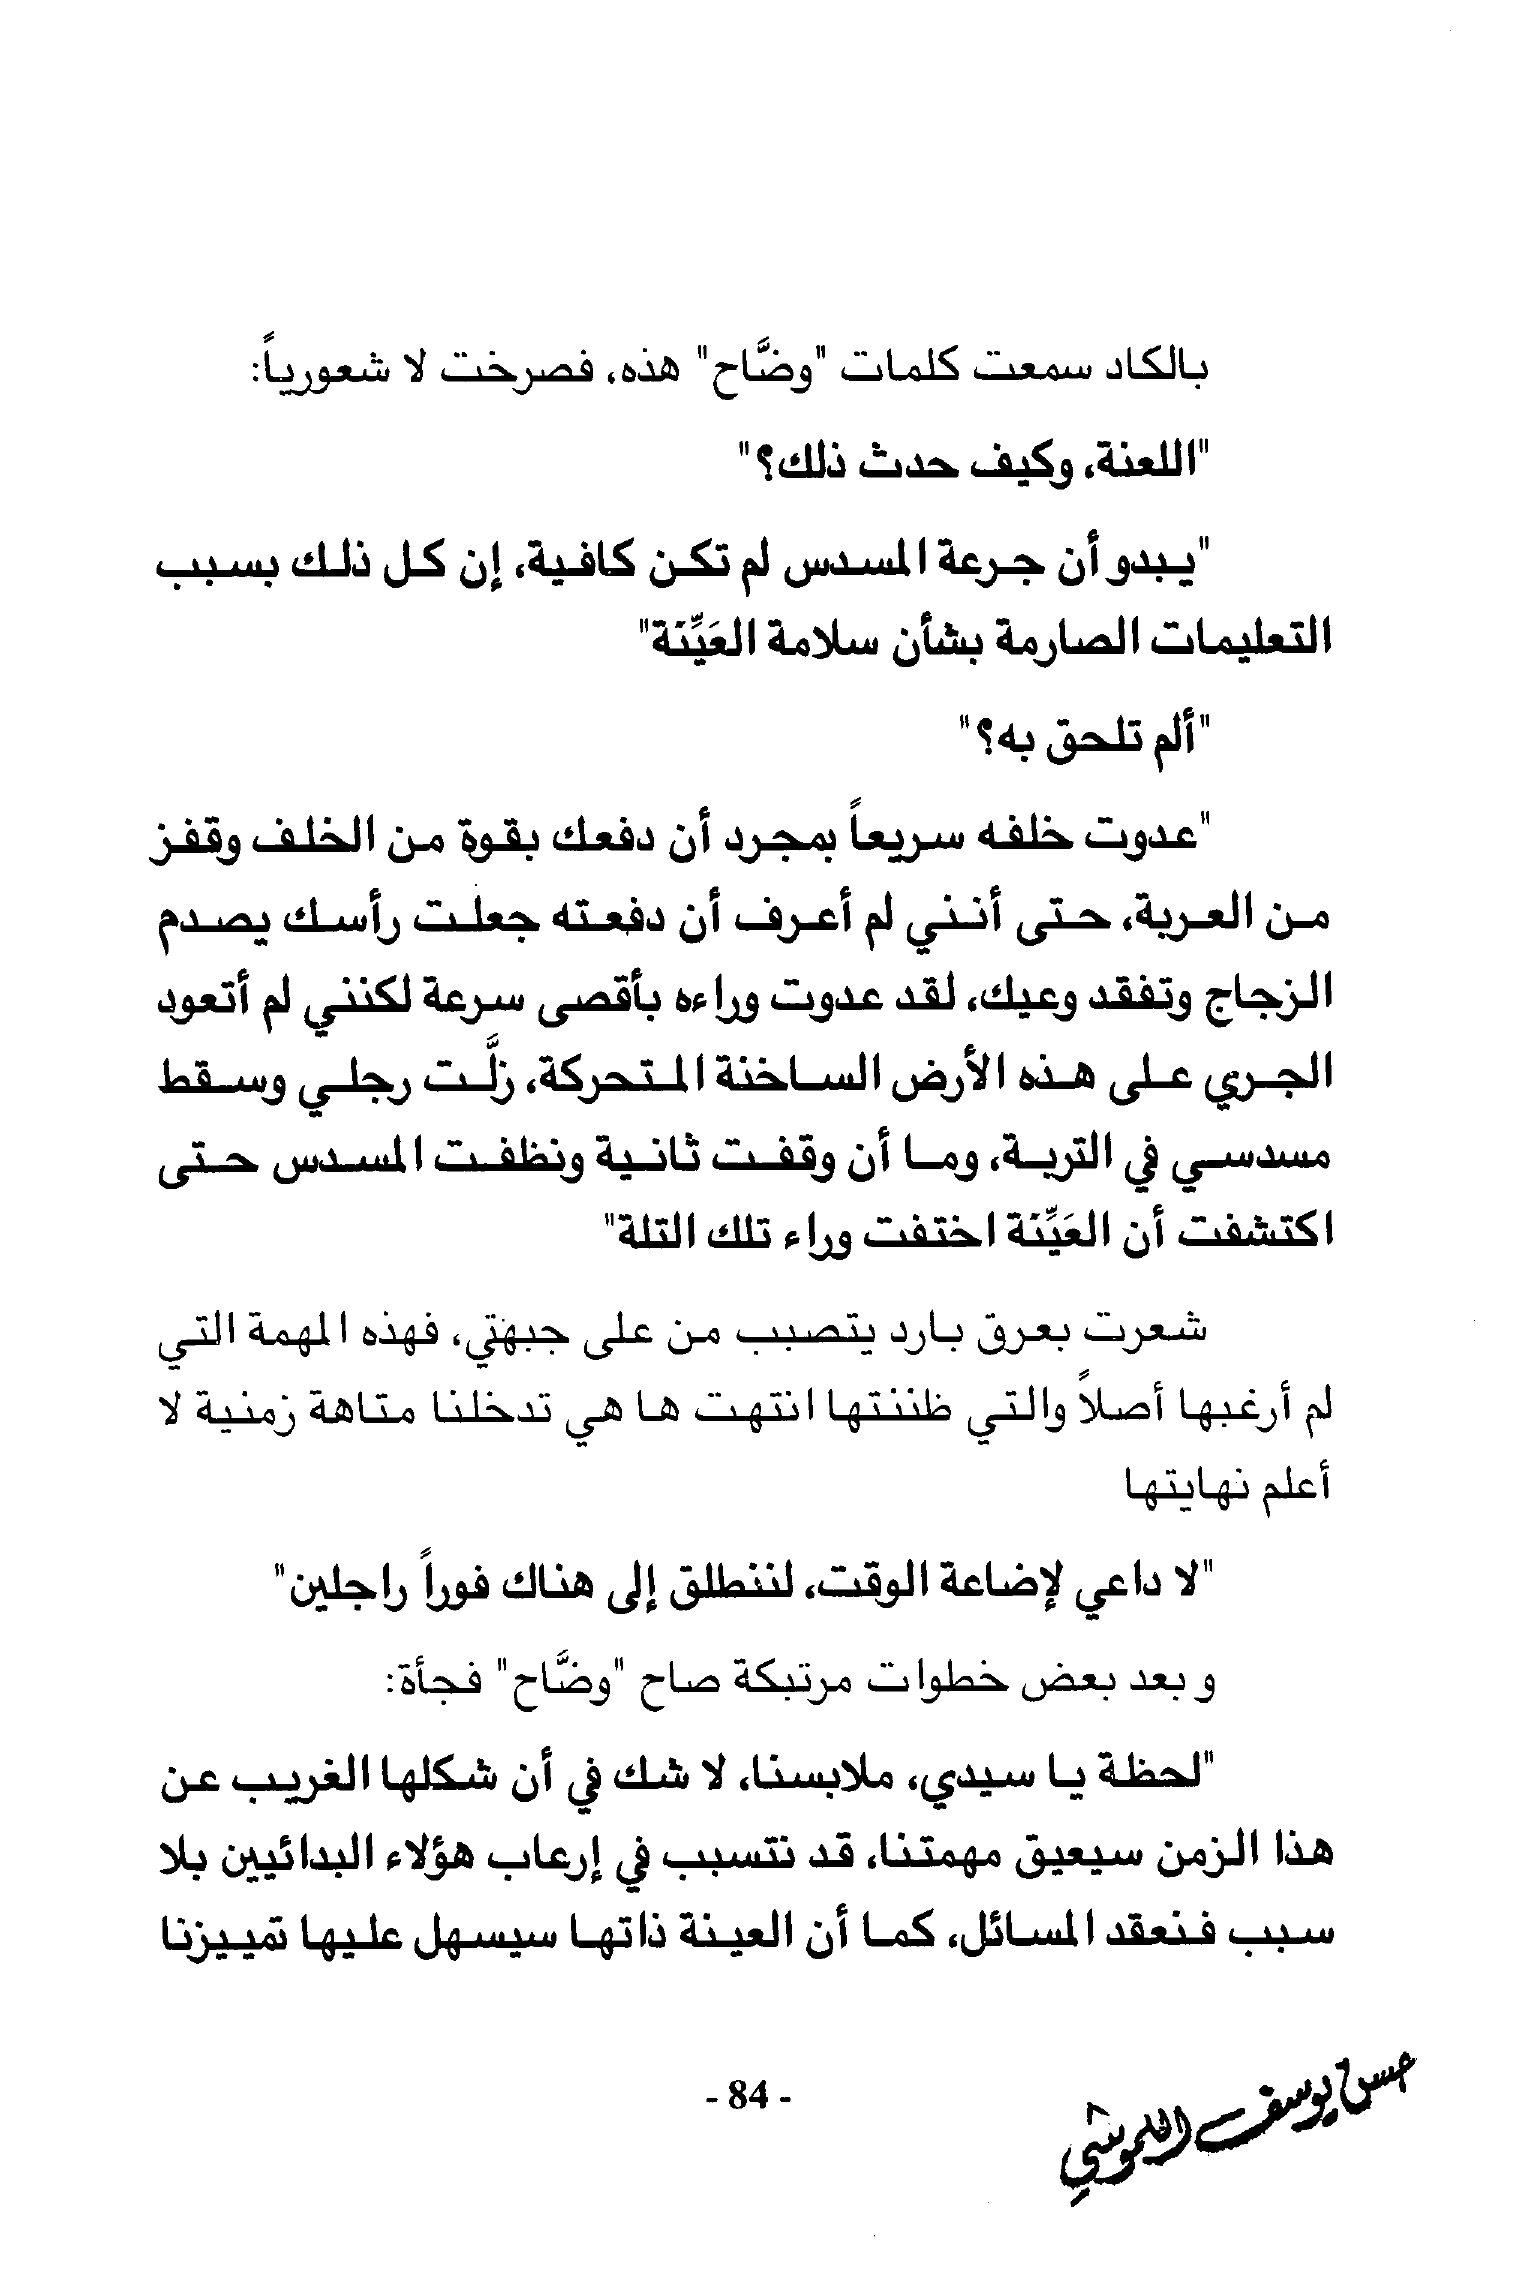 بالكاد سمعت كلمات "وضَّاح" هذه، فصرخت لا شعورياً:
"اللعنة، وكيف حدث ذلك؟"
"يبدو أن جرعة المسدس لم تكن كافية، إن كل ذلك بسبب
التعليمات الصارمة بشأن سلامة العَيِّنَة"
"ألم تلحق به؟"
"عدوت خلفه سريعاً بمجرد أن دفعك بقوة من الخلف وقفز
من العربة، حتى أنني لم أعرف أن دفعته جعلت رأسك يصدم
الزجاج وتفقد وعيك، لقد عدوت وراءه بأقصى سرعة لكنني لم أتعود
الجري على هذه الأرض الساخنة المتحركة، زلَّت رجلي وسقط
مسدسي في التربة، وما أن وقفت ثانية ونظفت المسدس حتى
اكتشفت أن العَيِّنَة اختفت وراء تلك التلة"
شعرت بعرق بارد يتصبب من على جبهتي، فهذه المهمة التي
لم أرغبها أصلاً والتي ظننتها انتهت ها هي تدخلنا متاهة زمنية لا
أعلم نهايتها
"لا داعي لإضاعة الوقت، لننطلق إلى هناك فوراً راجلين"
و بعد بعض خطوات مرتبكة صاح "وضَّاح" فجأة:
"لحظة يا سيدي، ملابسنا، لا شك في أن شكلها الغريب عن
هذا الزمن سيعيق مهمتنا، قد نتسبب في إرعاب هؤلاء البدائيين بلا
سبب فنعقد المسائل، كما أن العينة ذاتها سيسهل عليها تمييزنا
- 84 -
حسن يوسف